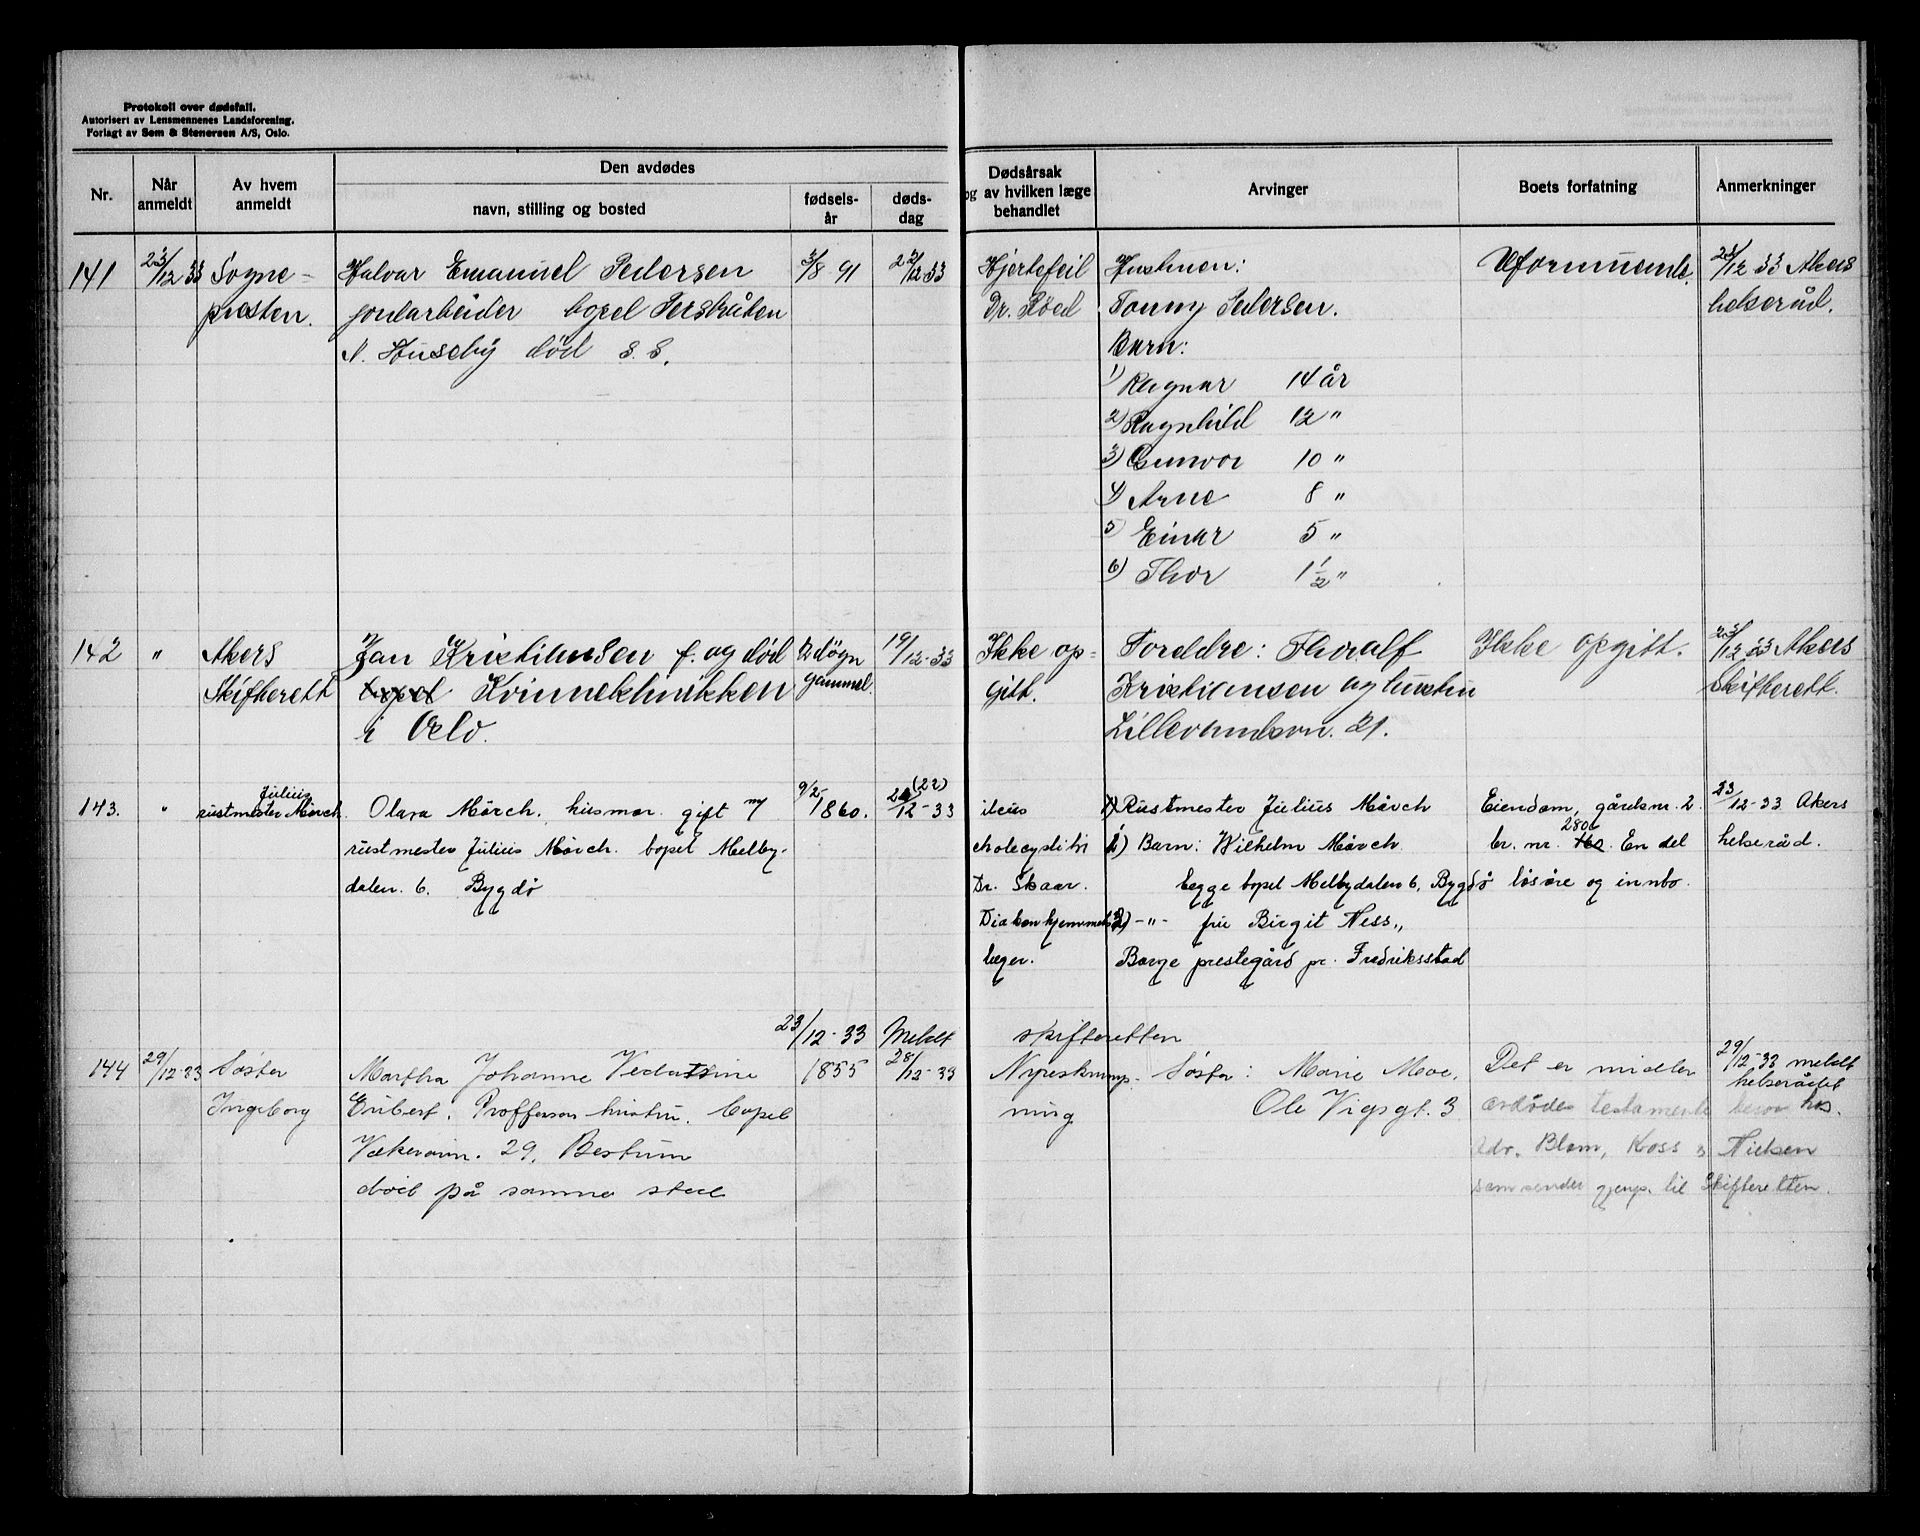 Protokoll over dødsfall.
Autorisert av Lensmennenes Landsforening.
Forlagt av Sem & Stenersen A/S, Oslo.
Nr.
Når anmeldt
Av hvem anmeldt
Den avdødes
navn, stilling og bosted
fødsels-år
døds-dag
Dødsårsak
og av hvilken læge
behandlet
Arvinger
Boets forfatning
Anmerkninger
141 23/12 33 Sogne- Halvar Emanuel Pedersen 3/8 91 22/12 33 Hjertefeil Hustruen: Uformuende. 23/12 33 Akers
presten. jordarbeider bopel Persbråten Dr. Røed Tonny Pedersen. helseråd.
N. Huseby død s. s. Barn:
1) Ragnar 14 år
2) Ragnhild 12 "
3) Gunvor 10 "
4) Arne 8 "
5) Einar 5 "
6) Thor 1 1/2 "
142 " Akers Jan Kristiansen f. og død 2 døgn 19/12-33 Ikke op- Foreldre: Thoralf Ikke opgitt. 23/12 33 Akers
Skifterett bopel Kvinneklinikken gammel. gitt. Kristiansen og hustru Skifterett.
i Oslo. Lillevandsvn. 21.
143. " Julius
rustmester Mörch. Olara Mörch, husmor. gift m/ 9/2 1860. (22) 12-33 ileus 1) Rustmester Julius Mörch Eiendom, gårdsnr. 2 23/12-33 Akers
rustmester Julius Mörch. bopel Melby- cholecystitis 2) Barn: Wilhelm Mörch br. nr. 280 En del helseråd.
dalen. 6. Bygdö Dr. Skaar. begge bopel Melbydalen 6, Bygdö løsøre og innbo.
Diakonhjemmets -"- fru Birgit Ness,
læger. Borge prestegård pr. Fredriksstad
23/12-33 Meldt skifteretten
144 29/12-33 Søster Martha Johanne 1855 28/12-33 Nyreskrump- Søster: Marie Moe, Det er midler 29/12-33 meldt
helserådet
Ingeborg bopel ning Ole Vigsgt. 3 avdødes testamente beror hos.
Vækerøvn. 29, Bestum adv. Blom, Ross og Nielsen
død på samme sted som sender gjenp. til Skifteretten.